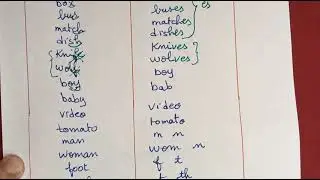 box
bus buses es
match matches
dish dishes
knife knives
wolf wolves
boy boy
baby bab
video video
tomato tomato
man m n
woman wom n
foot f t
t th